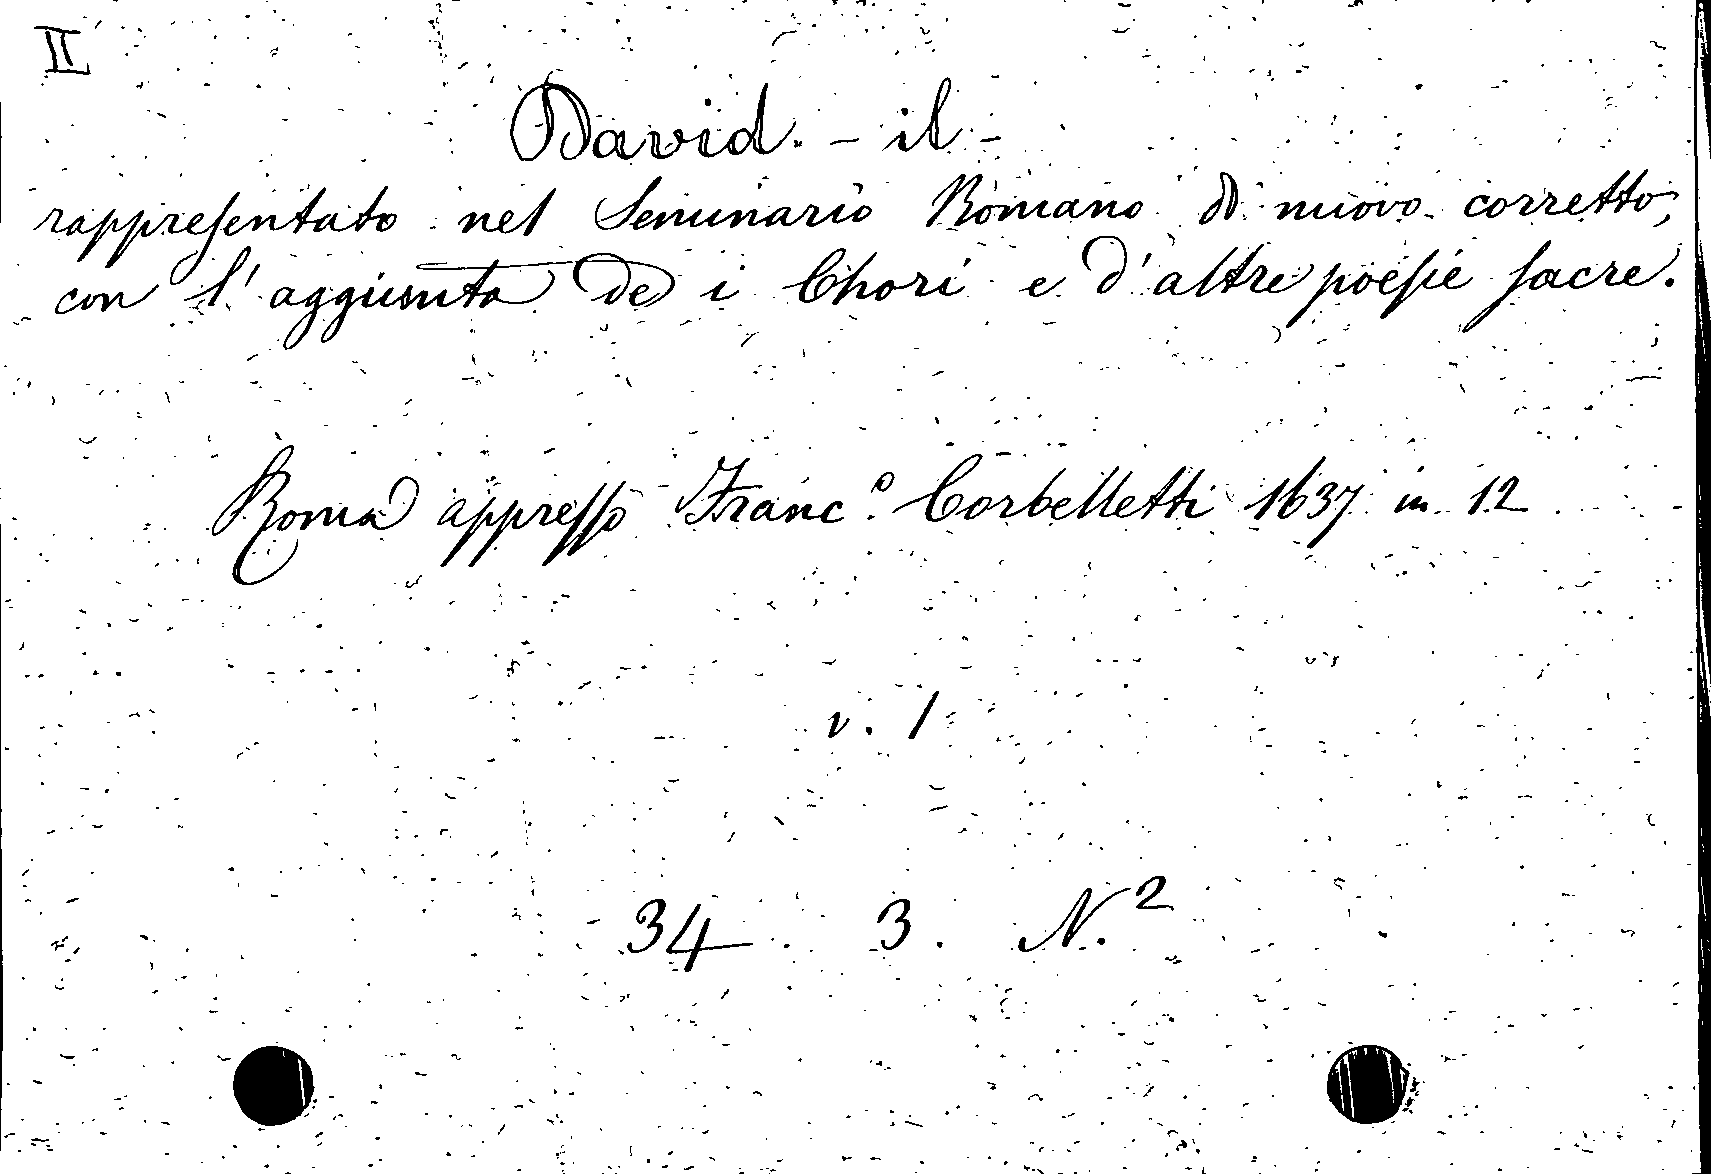 II
David. - il -
rappresentato nel Seminario Romano di nuovo corretto,
con l'aggiunta de i Chori e d'altre poesie sacre.
Roma appresso Franc.º Corbelletti 1637 in 12
v. 1
34 3. N.²